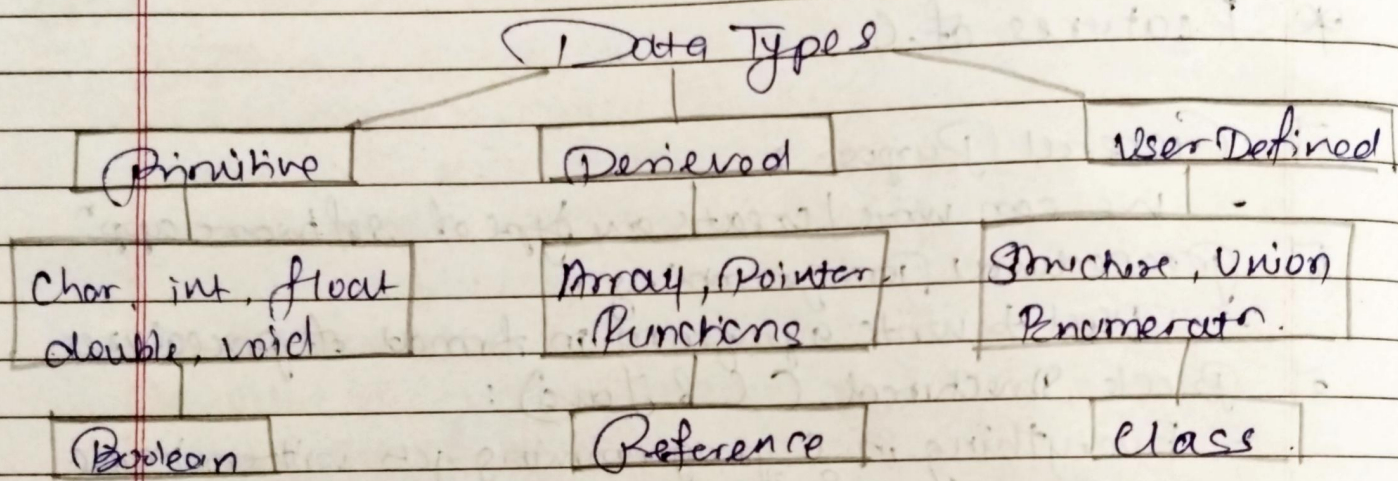 Data Types
Primitive
Derieved
User Defined
Char, int, float
double, void.
Array, Pointer
Functions
Structure, Union
Enumeratn.
Boolean
Reference
Class.